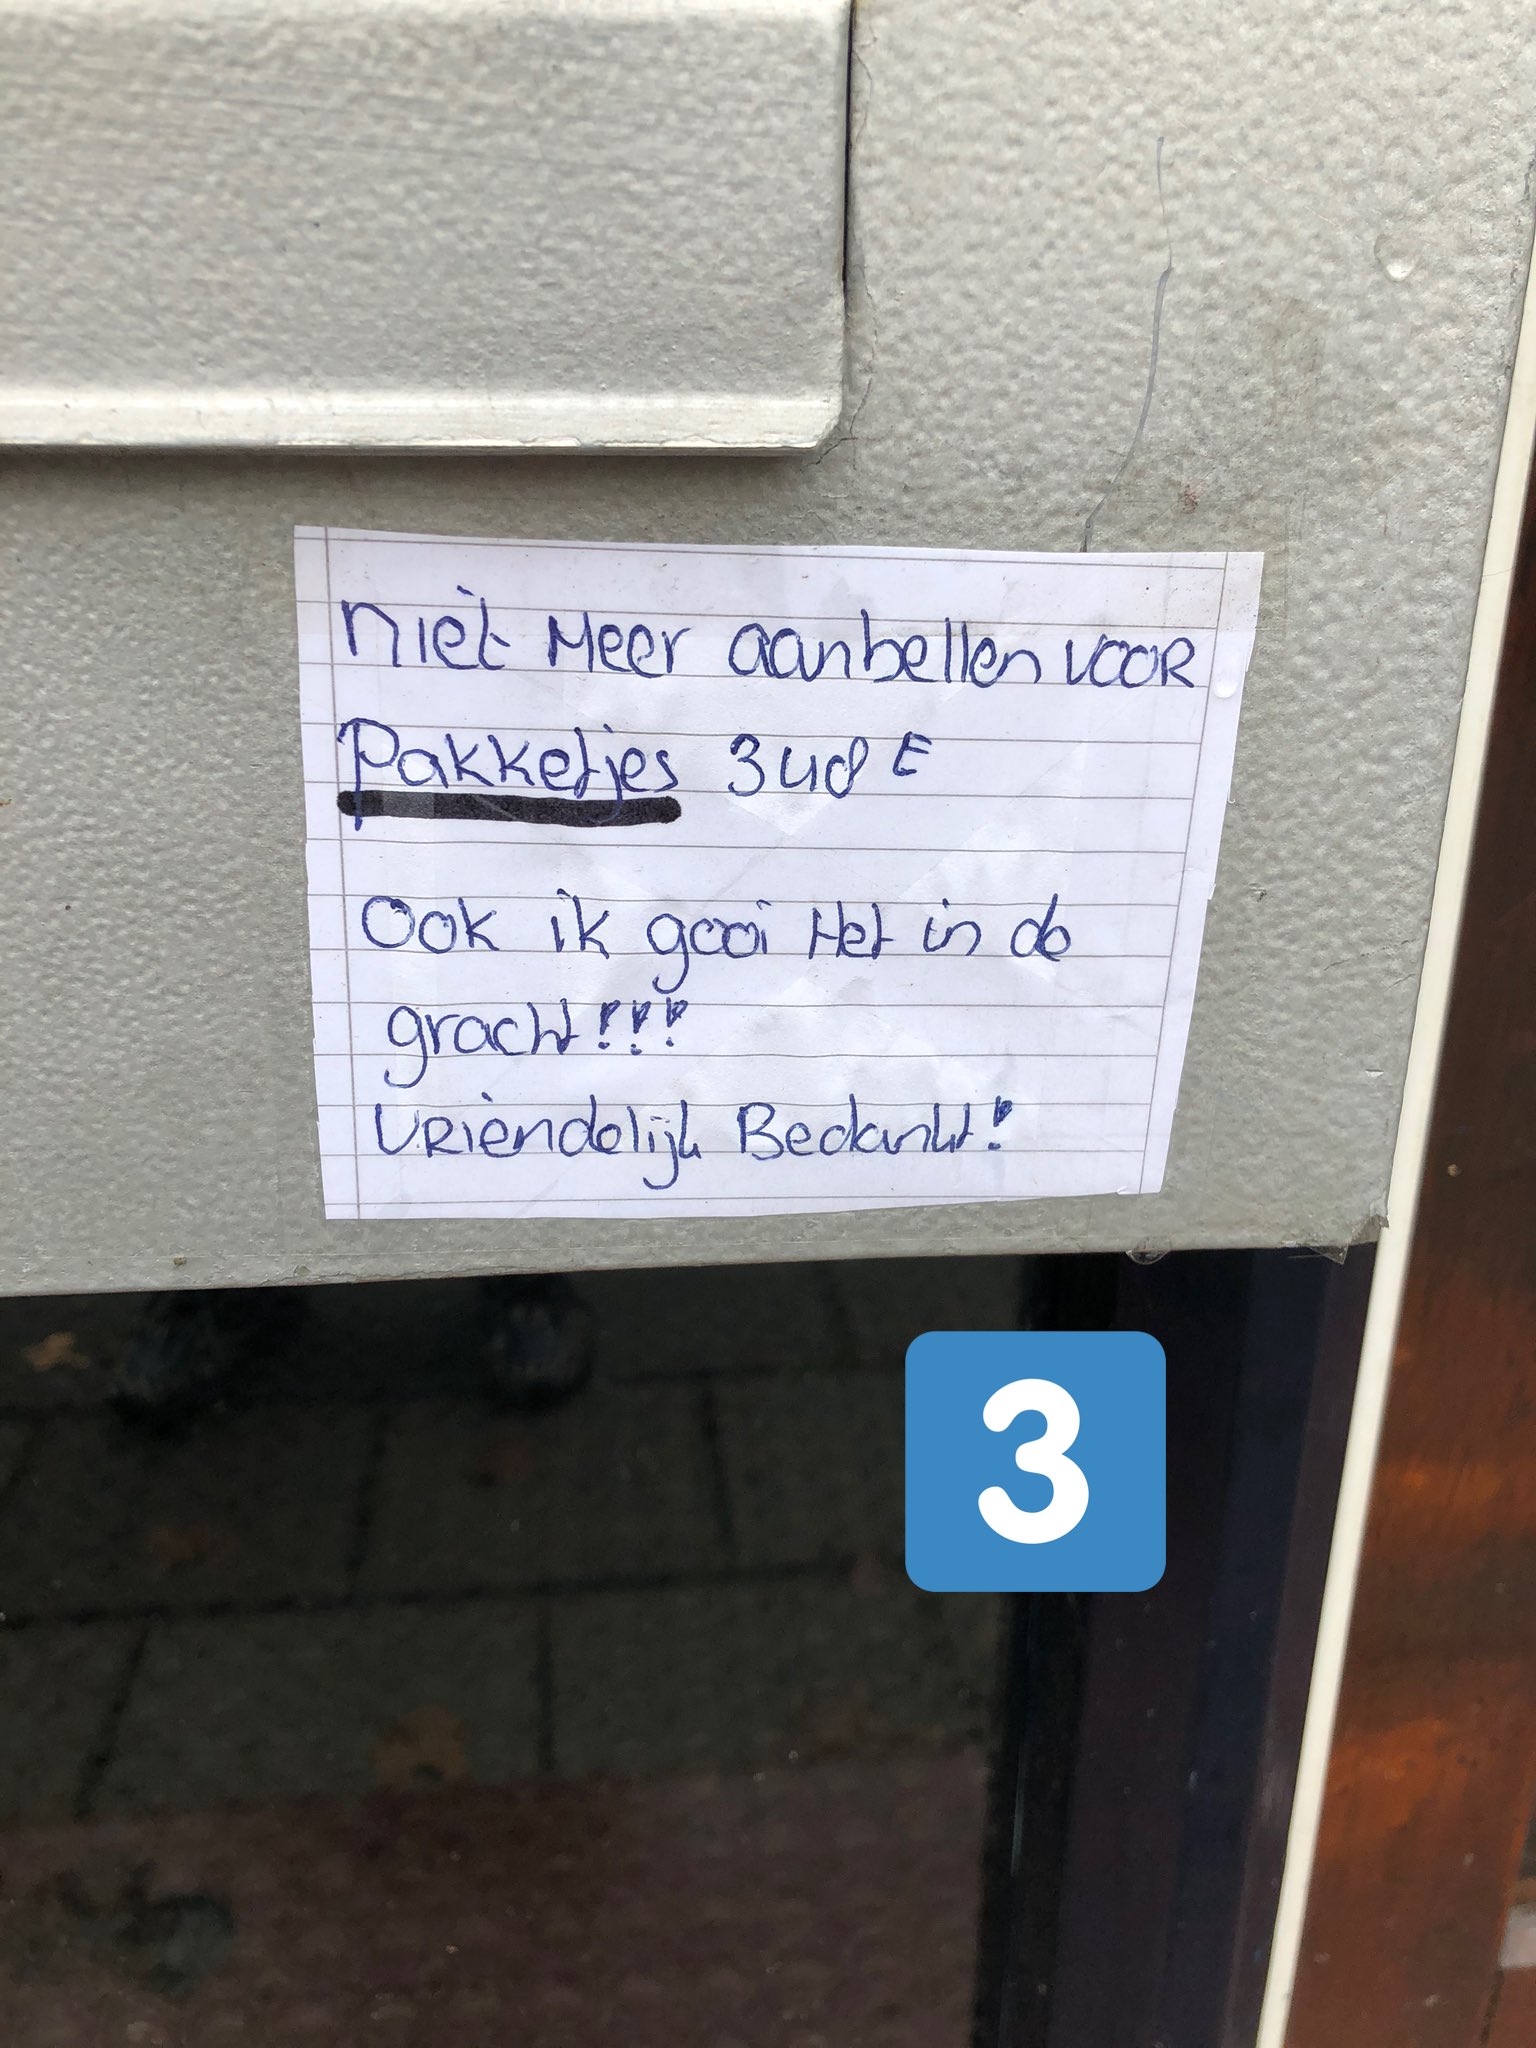 niet Meer aanbellen VOOR
Pakketjes 348 E
Ook ik gooi Het in de
gracht!!!
Vriendelijk Bedankt!
3